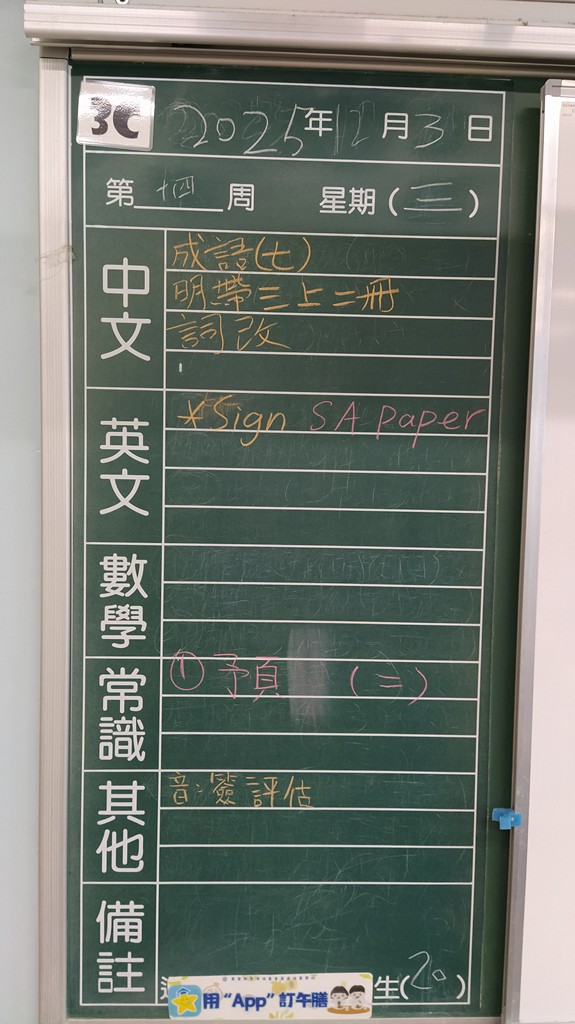 3C
2025年12月3日
第十四周 星期(三)
中文
成語(七)
明帶三上二冊
詞改
英文
*Sign SA paper
數學
常識
① 預 (二)
其他
音:簽評估
備註
生(20)
用“App”訂午膳